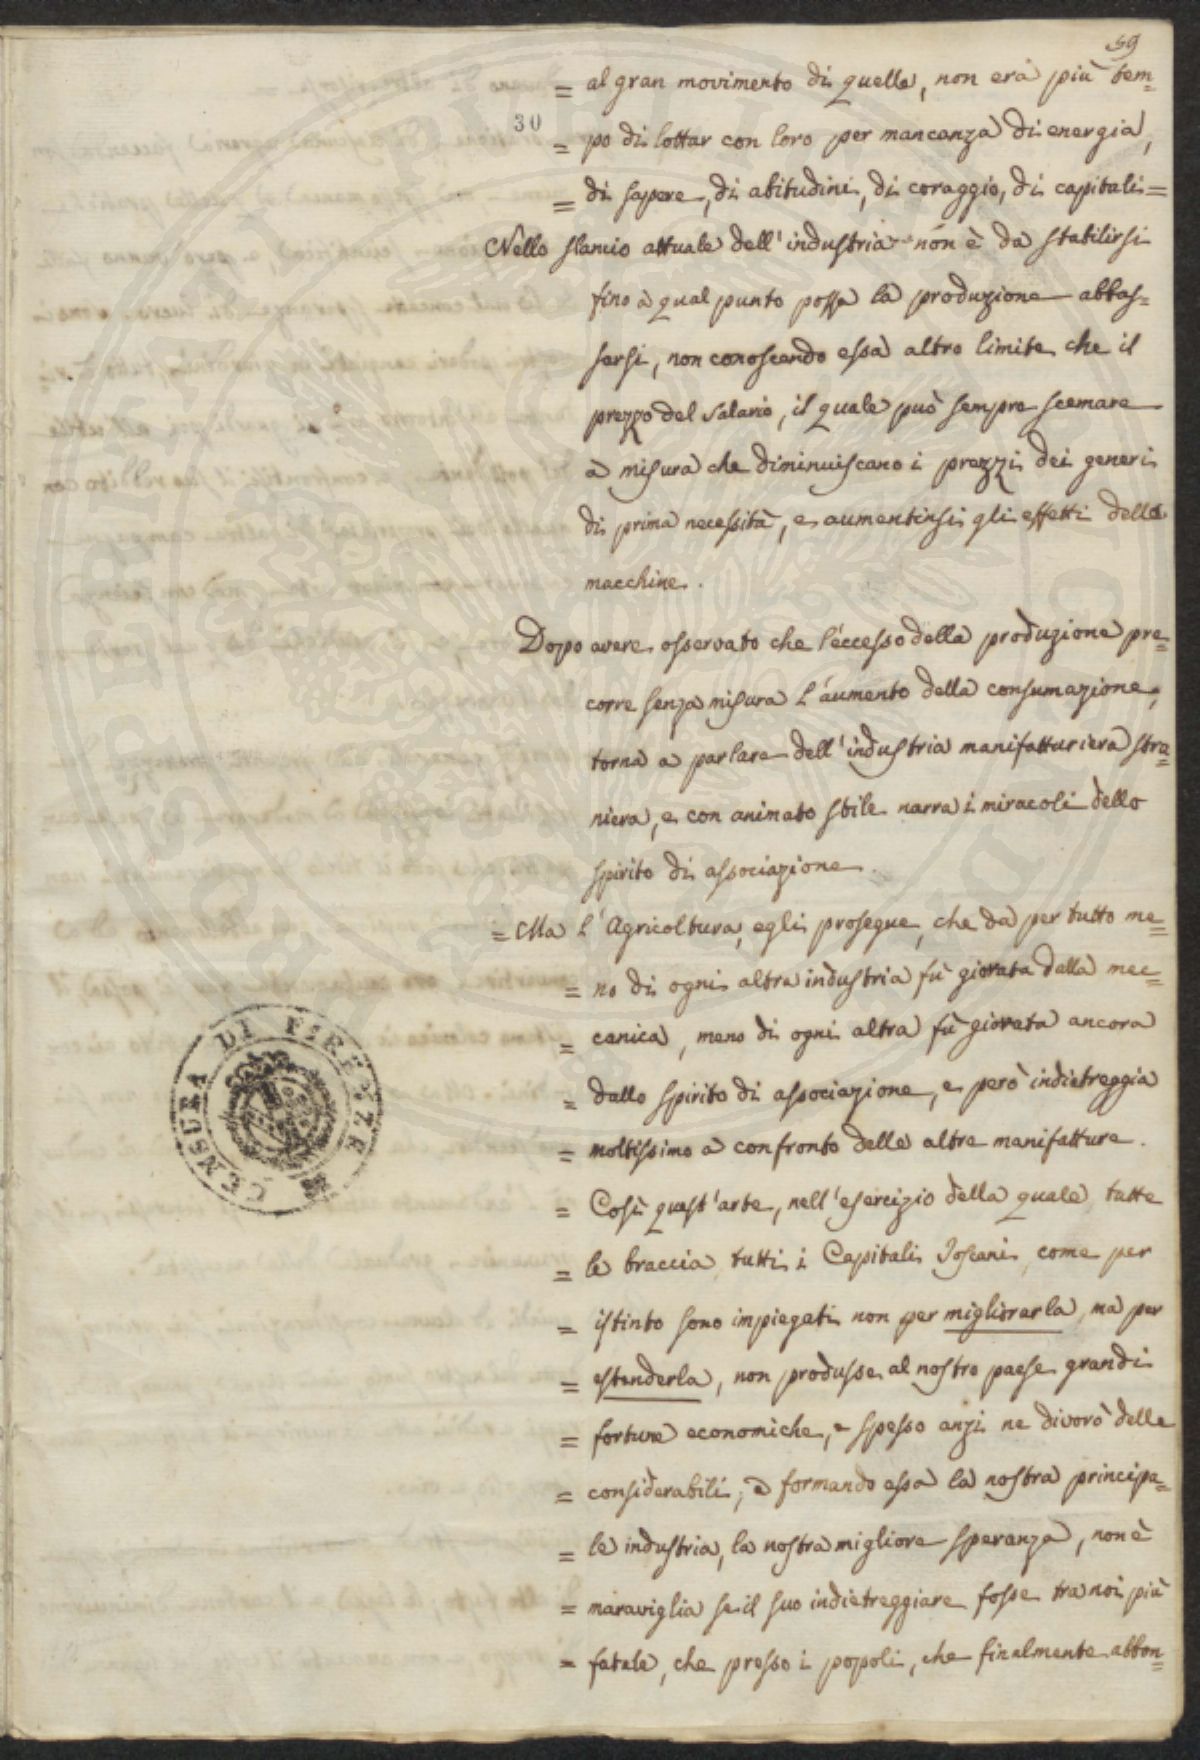 59
= al gran movimento di quelle, non era più tem=
30
= po di lottar con loro per mancanza di energia,
= di sapere, di abitudini, di coraggio, di capitali =
Nello slancio attuale dell'industria non è da stabilirsi
fino a qual punto possa la produzione abbas=
sarsi, non conoscendo essa altro limite che il
prezzo del salario, il quale può sempre scemare
a misura che diminuiscano i prezzi dei generi
di prima necessità, e aumentinsi gli effetti delle
macchine.
Dopo avere osservato che l'eccesso della produzione pre=
corre senza misura l'aumento della consumazione,
torna a parlare dell'industria manifatturiera stra=
niera, e con animato stile narra i miracoli dello
spirito di associazione.
= Ma l'Agricoltura, egli prosegue, che da per tutto me=
= no di ogni altra industria fù giovata dalla mec=
= canica, meno di ogni altra fù giovata ancora
= dallo spirito di associazione, e però indietreggia
= moltissimo a confronto delle altre manifatture.
= Così quest'arte, nell'esercizio della quale tutte
= le braccia tutti i Capitali Toscani come per
= istinto sono impiegati non per migliorarla, ma per
= estenderla, non produsse al nostro paese grandi
= fortune economiche, e spesso anzi ne divorò delle
= considerabili; e formando essa la nostra principa=
= le industria, la nostra migliore speranza, non è
= maraviglia se il suo indietreggiare fosse tra noi più
= fatale, che presso i popoli, che finalmente abbon=
CENSURA DI FIRENZE